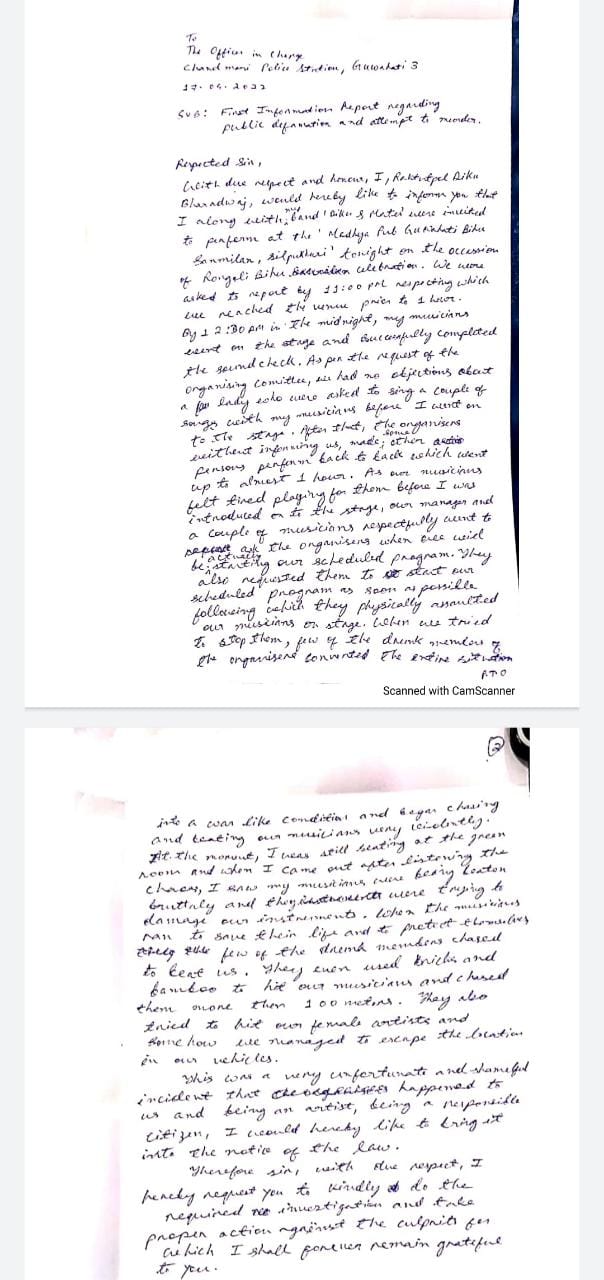 To
The Officer in Charge
Chandmari Police Station, Guwahati 3
17.04.2022
SUB: First Information Report regarding
public defamation and attempt to murder.
Respected Sir,
With due respect and honour, I, Diku
Bharadwaj, would hereby like to inform you that
I along with my band 'Diku & Mates' were invited
to perform at the 'Madhya Pub Guwahati Bihu
Sanmilan, Silpukhuri' tonight on the occassion
of Rongali Bihu celebration. We were
asked to report by 11:00 PM respecting which
we reached the venue prior to 1 hour.
By 12:30 AM in the midnight, my musicians
went on the stage and successfully completed
the sound check. As per the request of the
organising comittee, we had no objections about
a lady who were asked to sing a couple of
songs with my musicians before I went on
to the stage. After that, the organisers
without informing us, made some other
persons perform back to back which went
up to almost 1 hour. As our musicians
felt tired playing for them before I was
introduced on to the stage, our manager and
a couple of musicians respectfully went to
ask the organisers when we will
be actually starting our scheduled program. They
also requested them to start our
scheduled program as soon as possible
following which they physically assaulted
our musicians on stage. When we tried
to stop them, few of the drunk members of
the organisers converted the entire situation
P.T.O
Scanned with CamScanner
2
into a war like condition and began chasing
and beating our musicians very violently.
At the moment, I was still seating at the green
room and when I came out after listening the
chaos, I saw my musicians were being beaten
brutally and they were trying to
damage our instruments. When the musicians
ran to save their life and to protect themselves
few of the drunk members chased
to beat us. They even used bricks and
bamboo to hit our musicians and chased
them more then 100 meters. They also
tried to hit our female artists and
somehow we managed to escape the location
in our vehicles.
This was a very unfortunate and shameful
incident that happened to
us and being an artist, being a responsible
citizen, I would hereby like to bring it
into the notice of the law.
Therefore sir, with due respect, I
hereby request you to kindly do the
required investigation and take
proper action against the culprits for
which I shall forever remain grateful
to you.